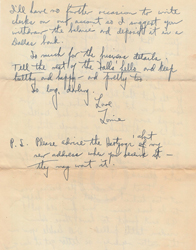 I'll have no further occasion to write
checks on that account so I suggest you
withdraw the balance and deposit it in a
Dallas bank.
So much for the financial details.
Tell the rest of the folks hello and keep
healthy and happy - and pretty too.
So long, darling.
Love
Louise
P.S. Please advise the Postgage of my
new address when you receive it -
they may want it!